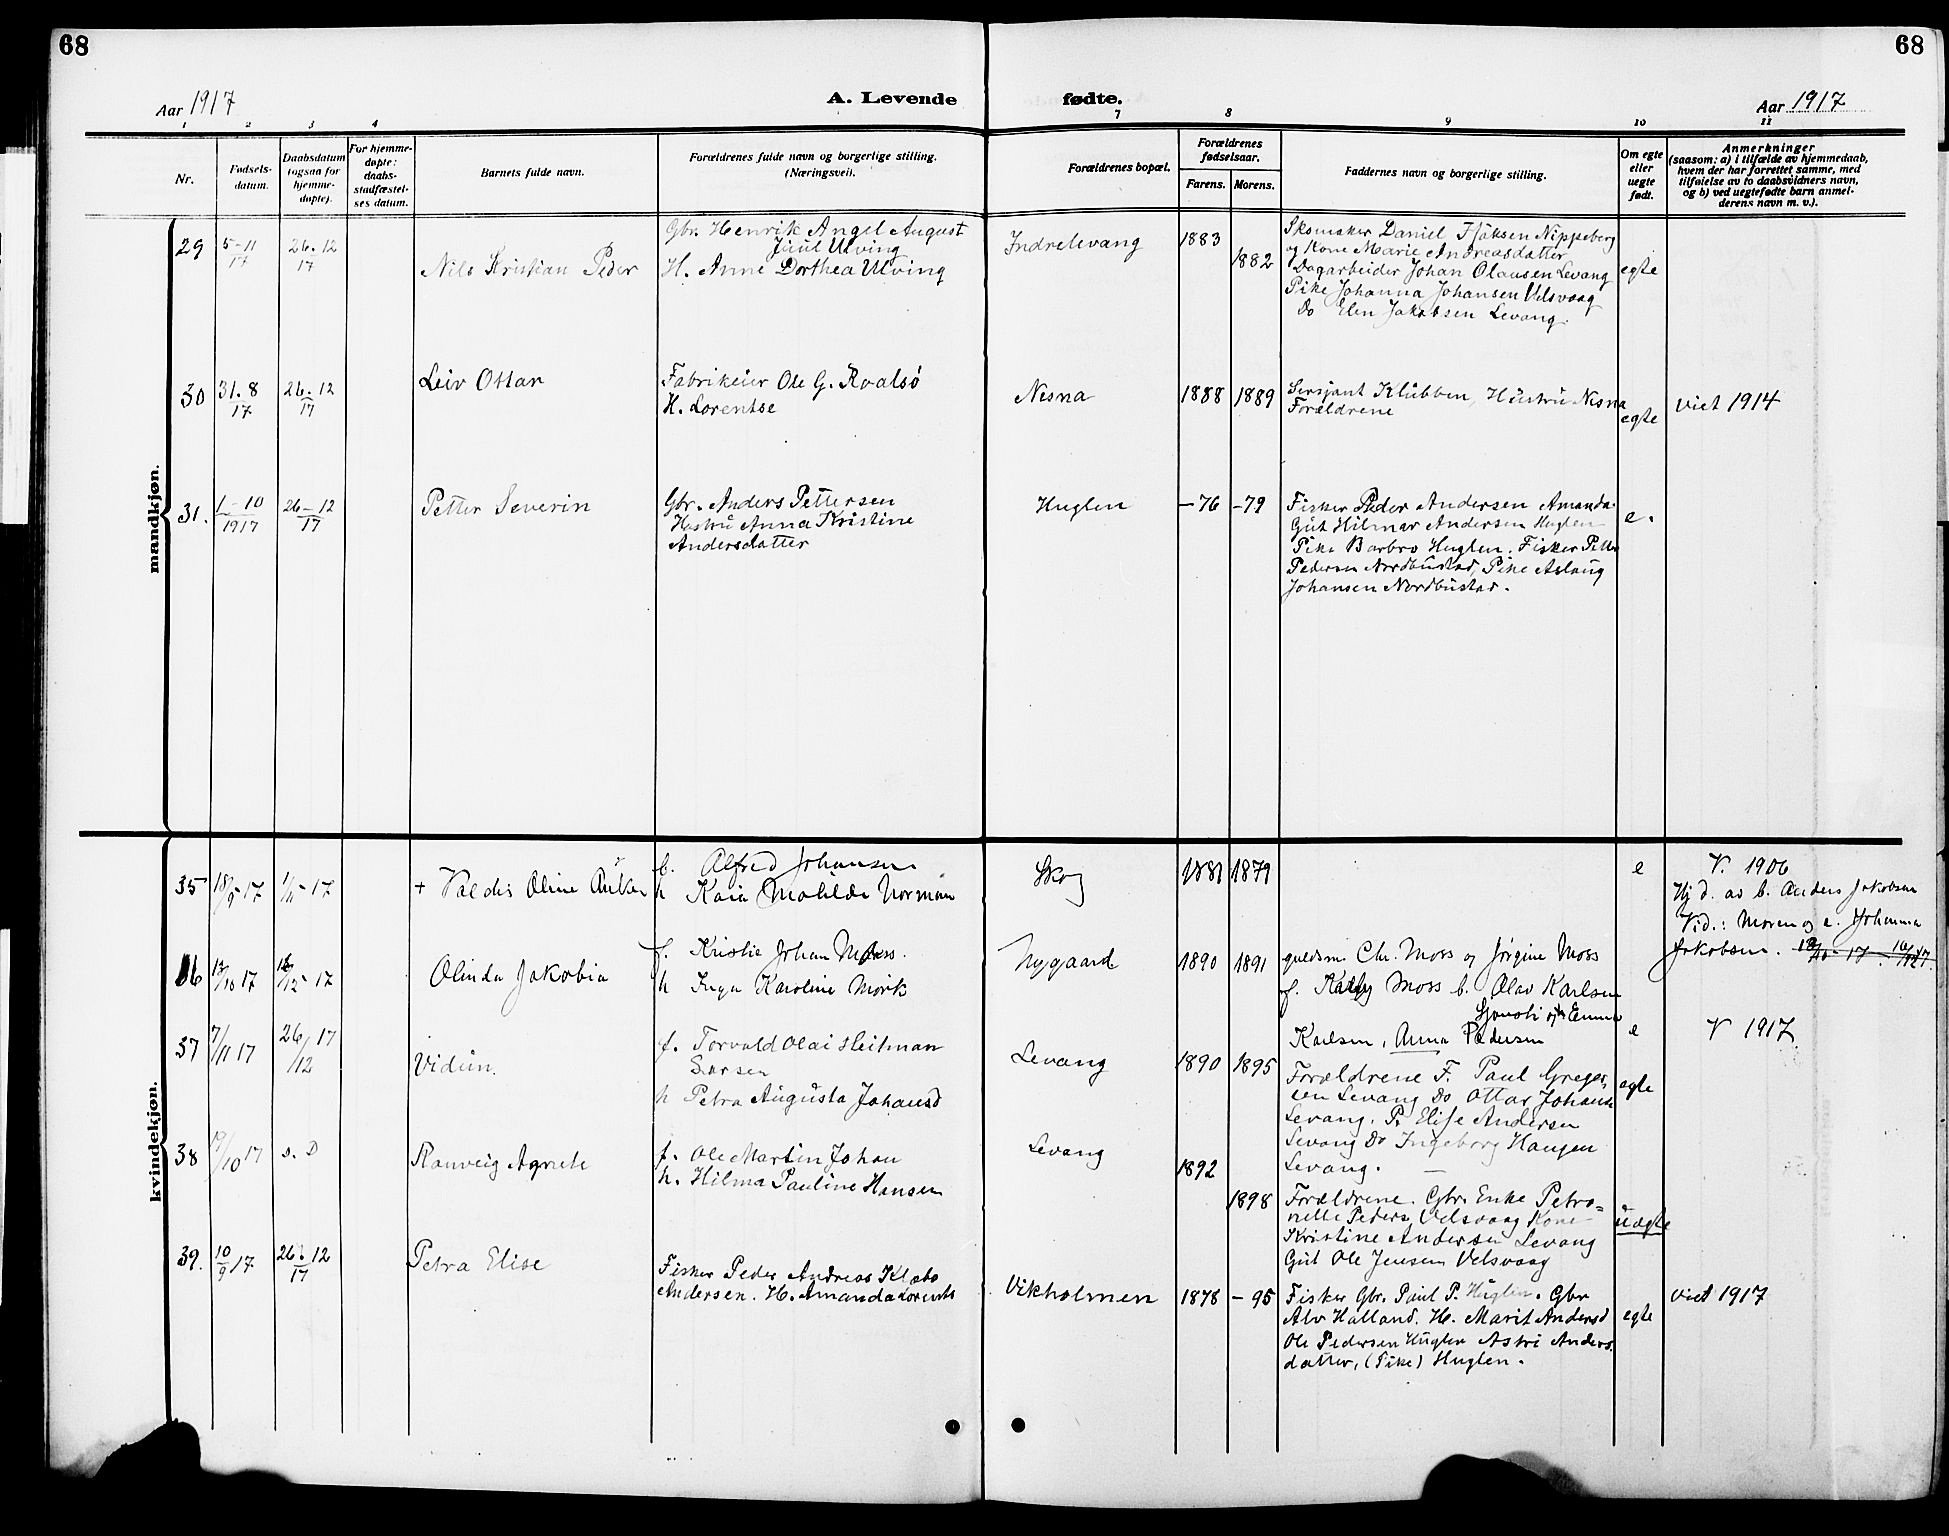 68
68
Aar 1917
A. Levende
fødte.
Aar 1917
1 2 3 4 7 8 9 10 11
Nr.
Fødsels-
datum.
Daabsdatum
(ogsaa for
hjemme-
døpte).
For hjemme-
døpte:
daabs-
stadfæstel-
ses datum.
Barnets fulde navn.
Forældrenes fulde navn og borgerlige stilling.
(Næringsvei).
Forældrenes bopæl.
Forældrenes
fødselsaar.
Farens. Morens.
Faddernes navn og borgerlige stilling.
Om egte
eller
uegte
født.
Anmerkninger
(saasom: a) i tilfælde av hjemmedaab,
hvem der har forrettet samme, med
tilføielse av to daabsvidners navn,
og b) ved uegtefødte barn anmel-
derens navn m. v.).
mandkjøn.
29
5-11
17
26-12
17
Nils Kristian Peder
Gbr. Henrik Angel August
Juul Ulving
H. Anne Dorthea Ulving
Indrelevang
1883
1882
Skomaker Daniel Isaksen Nippeberg
og Kone Marie Andreasdatter
Dagarbeider Johan Olausen Levang
Pike Johanna Johansen Velsvaag
Do Elen Jakobsen Levang.
egte
30
31.8
17
26.12
17
Leiv Ottar
Fabrikeier Ole G. Kvalsø
H. Lorentse
Nesna
1888
1889
Sersjant Klubben, Hustru Nesna
Forældrene
egte
viet 1914
31.
1-10
1917
26-12
17
Petter Severin
Gbr. Anders Pettersen
Hustru Anna Kristine
Andersdatter
Huglen
-76
-79
Fisker Peder Andersen Amanda
Gut Hilmar Andersen Huglen
Pike Barbro Huglen. Fisker Petter
Pedersen Nordbustad, Pike Aslaug
Johansen Nordbustad.
e.
kvindekjøn.
35
18/9-17
1/11-17
+ Valdis Oline Anker
b. Alfred Johansen
h Kaia Matilde Norman
Skog
1881
1879
e
V. 1906
Hj d. av b. Anders Jakobsen
Vid.: Moren og e. Johanna
Jakobsen.
36
13/10 17
Olinda Jakobia
f. Kristie Johan Moss.
h Inga Karoline Mørk
Nygaard
1890
1891
guldsm. Chr. Moss og Jørgine Moss
f. Kally Moss b. Olav Karlsen
Sjonsli og h Emma
Karlsen, Anna Pedersen
e
V 1917
37
7/11 17
26/12 17
Vidun.
f. Torvald Olai Heitman
Larsen
h Petra Augusta Johansd
Levang
1890
1895
Forældrene F. Paul Greger,
sen Levang Do Ottar Johans
Levang. P. Elise Andersen
Levang Do Ingeborg Haugen
Levang.
egte
38
19/10 17
s. D
Ranveig Agnete
f. Ole Martin Johan
h. Hilma Pauline Hansen
Levang
1892
1898
Forældrene. Gbr. Enke Petro=
nelle Peders Velsvaag Kone
Kristine Andersen Levang
Gut Ole Jensen Velsvaag
uegte
39.
10/9 17
26.12
17
Petra Elise
Fisker Peder Andreas Klæbo
Andersen. H. Amanda Lorents
Vikholmen
1878
-95
Fisker Gbr. Paul P. Huglen. Gbr
Alv Halland. H. Marit Andersd
Ole Pedersen Huglen Astri Anders.
datter, (Pike) Huglen.
egte
viet 1917